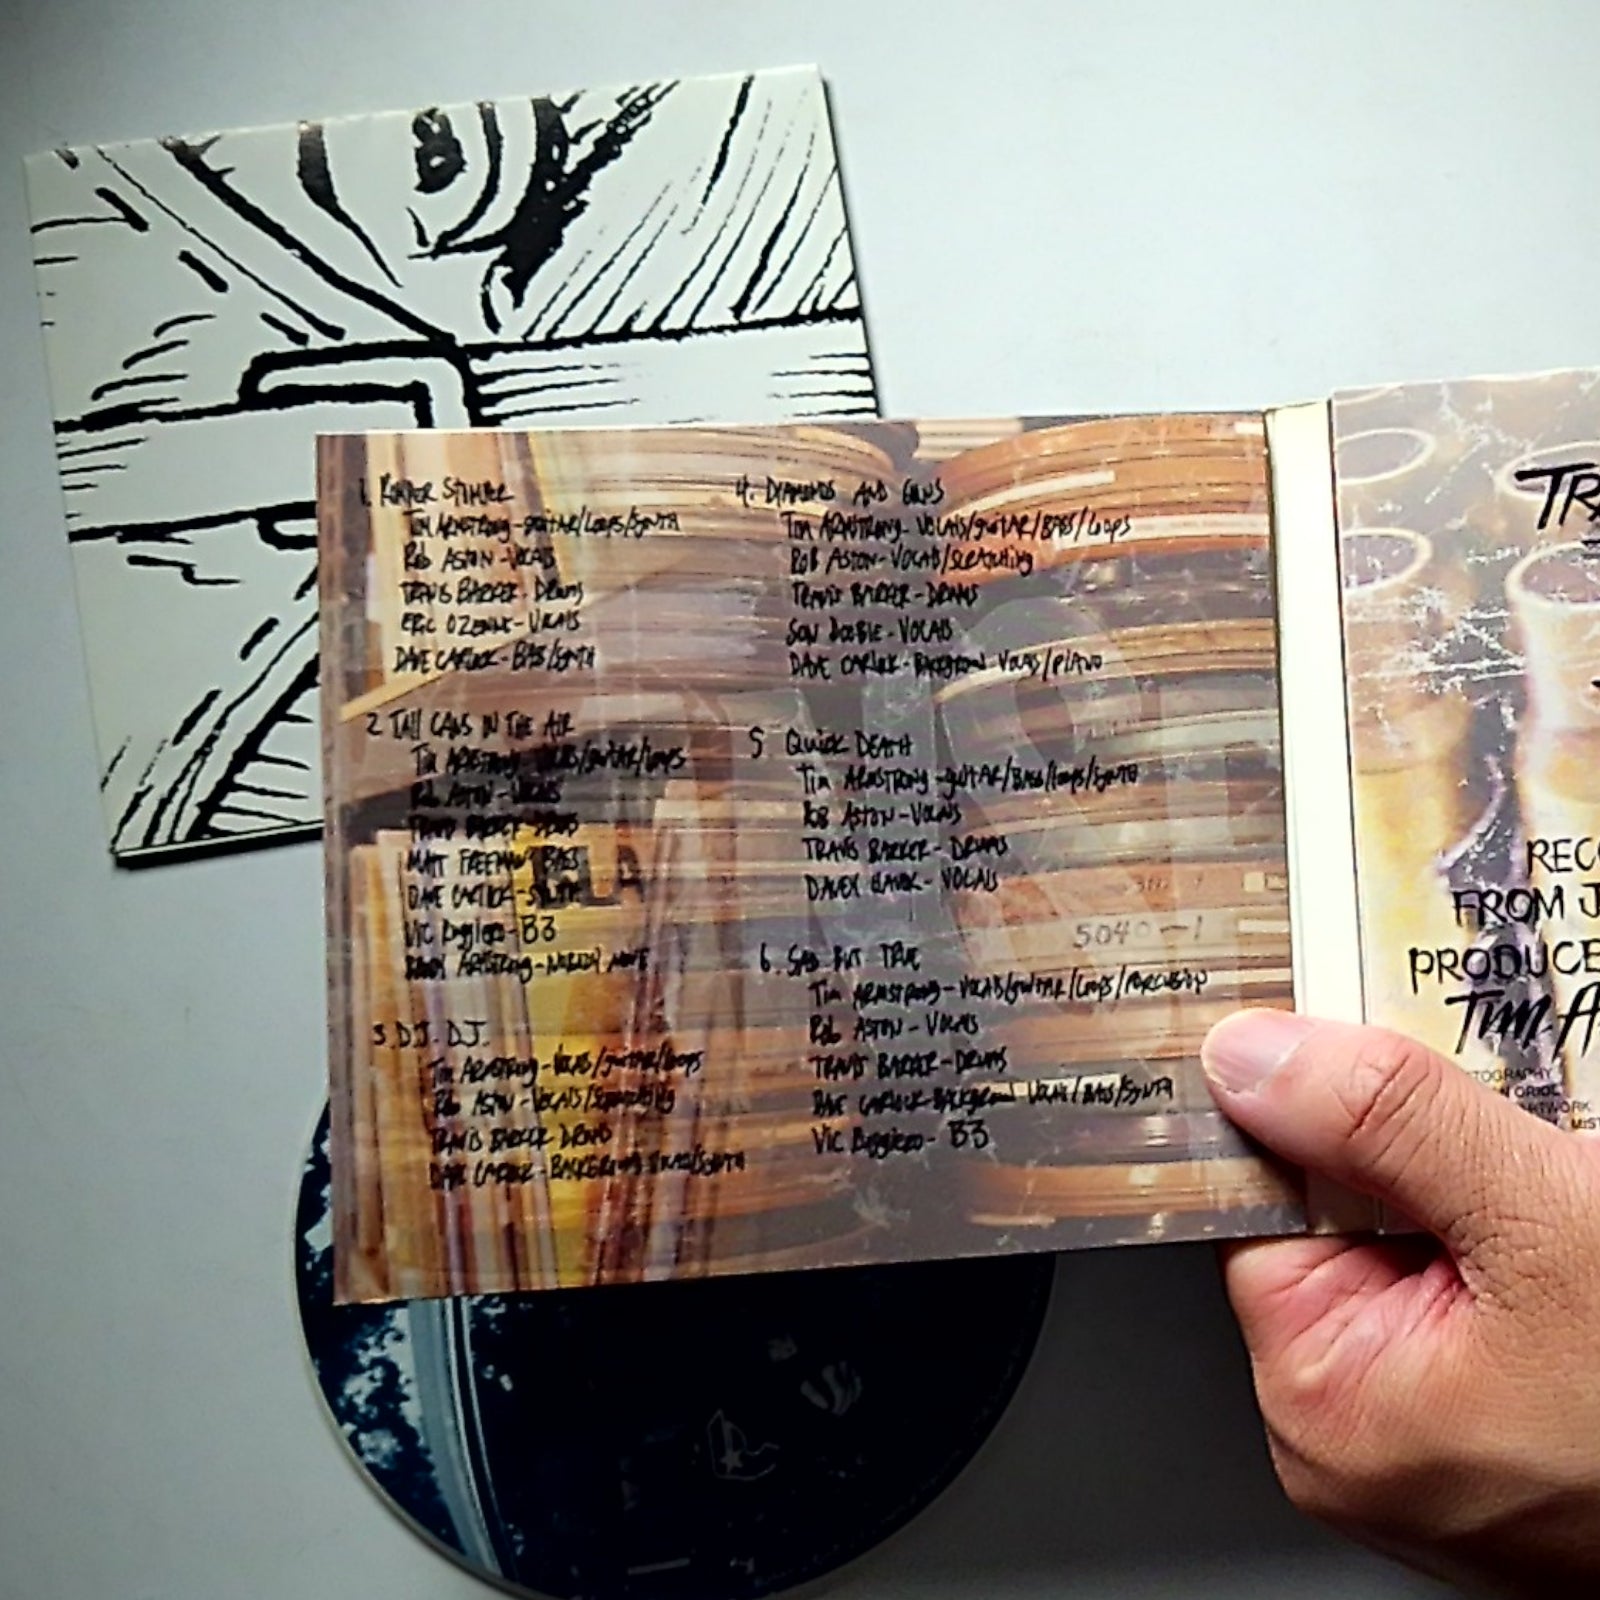 1. RAPPER STOMPER
TIM ARMSTRONG-guitAR/LOOPS/SYNTH
Rob ASTON-VOCALS
TRAVIS BARKER-DRUMS
ERIC OZENNE-VOCALS
DAVE CARLOCK-BASS/SYNTH
2 TAll CANS IN THE AIR
Tim ARMSTRONG-VOCALS/guitAR/loops
Rob ASTON-VOCALS
TRAVIS BARKER-DRUMS
MATT FREEMAN-BASS
DAVE CARLOCK-SYNTH
Vic Ruggiero-B3
ARMSTRONG-
3.D.J. D.J.
Tim ARMSTRONG-VOCALS/guitAR/loops
Rob ASTON-VOCALS/SCRATCHING
TRAVIS BARKER DRUMS
DAVE CARLOCK-BACKGROUND VOCALS/SYNTH
4. DIAMONDS AND GUNS
Tim ARMSTRONG-VOCALS/guitAR/BASS/LOOPS
ROB ASTON-VOCALS/SCRATCHING
TRAVIS BARKER-DRUMS
SON DOOBIE-VOCALS
DAVE CARLOCK-BACKGROUND VOCALS/PIANO
5 QUICK DEATH
Tim ARMSTRONG-guitAR/BASS/loops/SYNTH
ROB ASTON-VOCALS
TRAVIS BARKER-DRUMS
DAVEY HAVOK-VOCALS
5040-1
6. SAD BUT TRUE
Tim ARMSTRONG-VOCALS/guitAR/LOOPS/PERCUSSION
Rob ASTON-VOCALS
TRAVIS BARKER-DRUMS
DAVE CARLOCK-BACKGROUND VOCALS/BASS/SYNTH
Vic Ruggiero-B3
TRA
REC
FROM J
PRODUCE
Tim A
TOGRAPHY
N ORIOL
ARTWORK
MIST